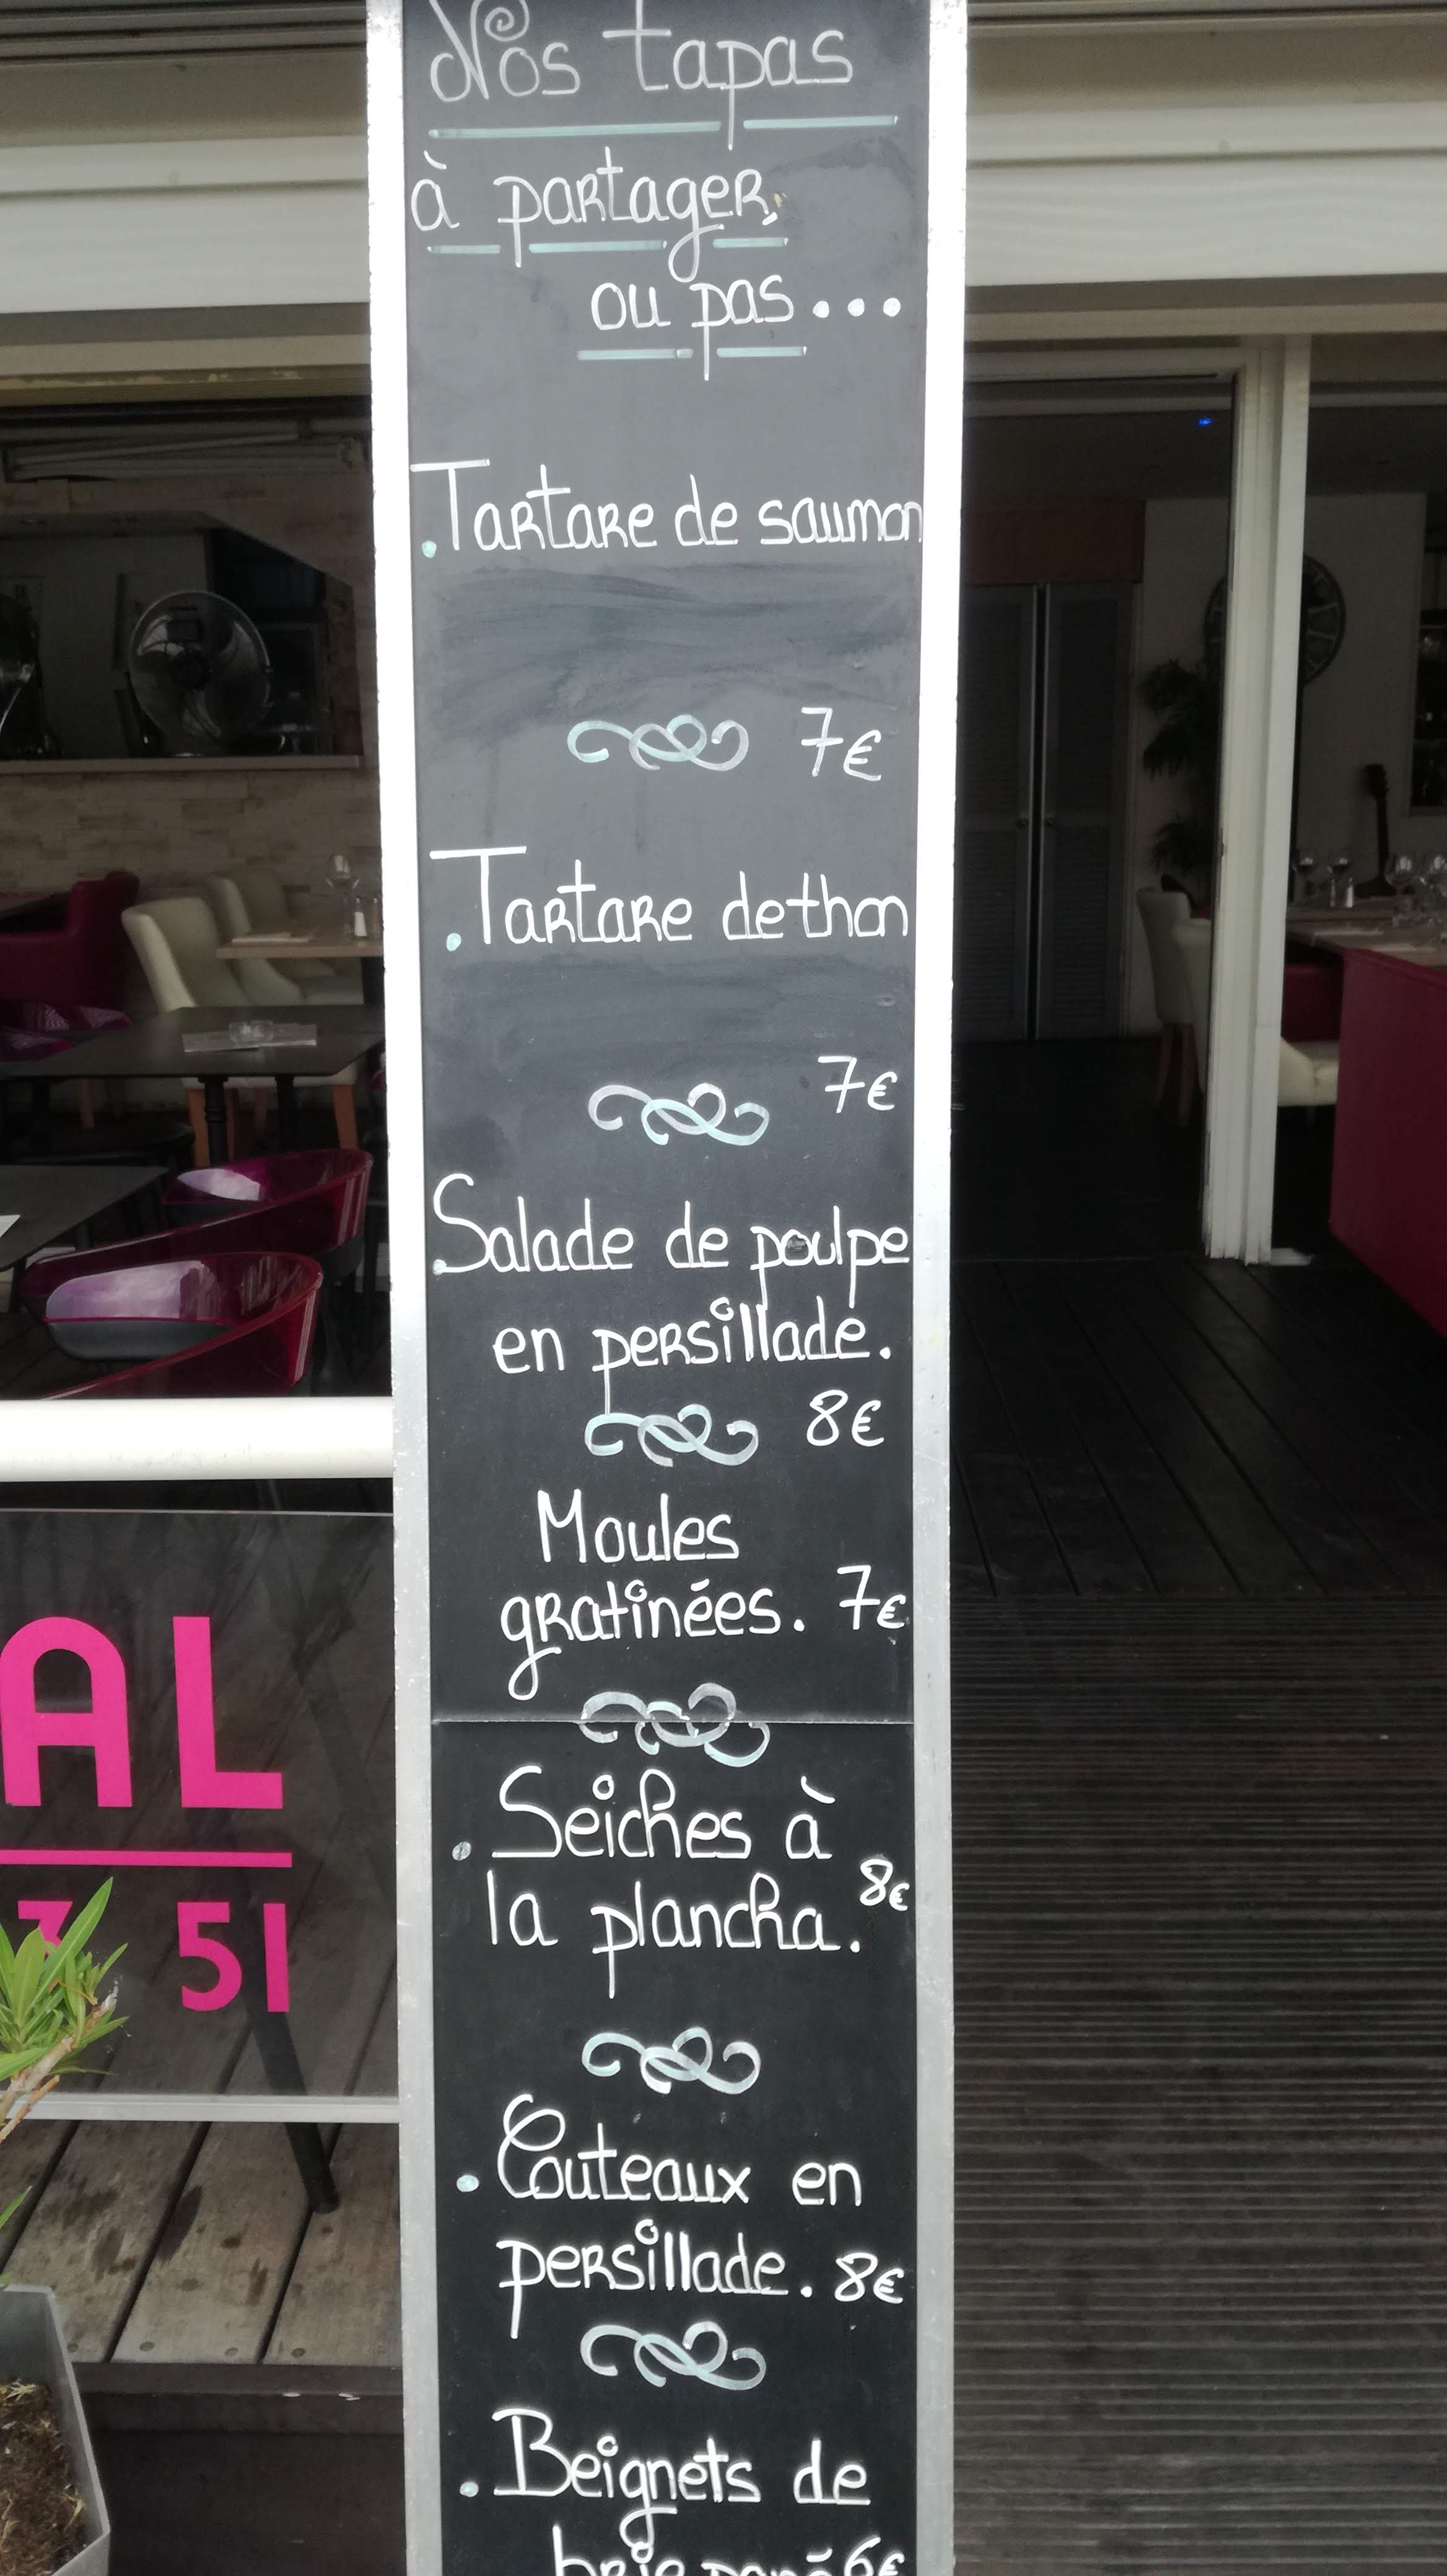 Nos tapas
à partager,
ou pas...
. Tartare de saumon
7€
. Tartare de thon
7€
. Salade de poulpe
en persillade.
8€
Moules
gratinées. 7€
. Seiches à
la plancha. 8€
. Couteaux en
persillade. 8€
. Beignets de
brie pané 6€
AL
51